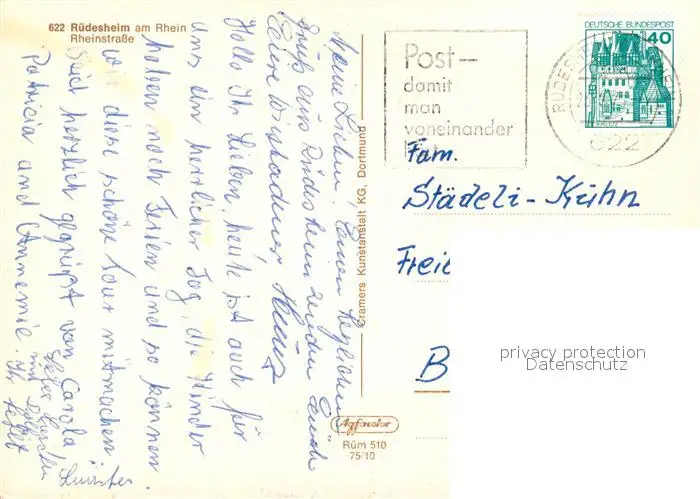 622 Rüdesheim am Rhein
Rheinstraße
Meine Lieben! Einen herzlichen
Gruß aus Rüdesheim senden Euch
Eure
Hallo Ihr Lieben, heute ist auch für
uns ein herrlicher Tag, die Kinder
haben noch Ferien und so können
wir diese schöne Tour mitmachen
Seid herzlich gegrüßt von Carola
Patricia und Annemie.
Ihr fehlt
Cramers Kunstanstalt KG, Dortmund
Agfacolor
Rüm 510
75/10
Post-
damit
man
voneinander
DEUTSCHE BUNDESPOST
40
622
Fam.
Städeli-Kühn
Frei
B
privacy protection
Datenschutz